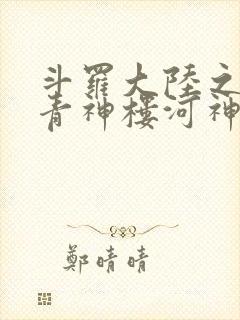 斗羅大陸之
青神樓河神
鄭晴晴